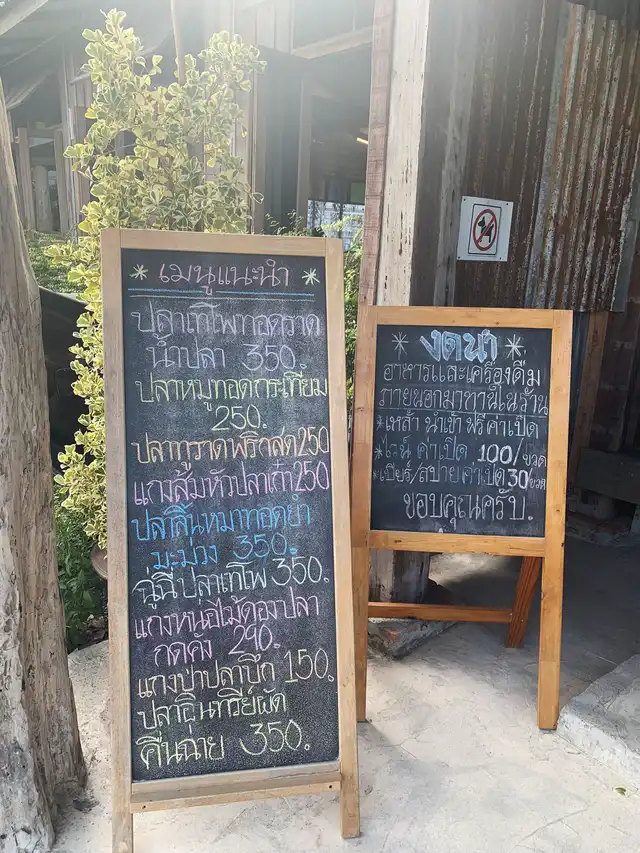 * เมนูแนะนำ *
ปลาเทโพทอดราด
น้ำปลา 350.
ปลาหมูทอดกระเทียม
250.
ปลาทูราดพริกสด 250
แกงส้มหัวปลาเก๋า 250
ปลาลิ้นหมาทอดยำ
มะม่วง 350.
ฉู่ฉี่ปลาเทโพ 350.
แกงหน่อไม้ดองปลา
กดคัง 290.
แกงป่าปลาบึก 150.
ปลาอินทรีย์ผัด
คื่นฉ่าย 350.
* งดนำ *
อาหารและเครื่องดื่ม
ภายนอกมาทานในร้าน
*เหล้า นำเข้า ฟรีค่าเปิด
*ไวน์ ค่าเปิด 100/ขวด
*เบียร์/สปาย ค่าเปิด 30/ขวด
ขอบคุณครับ.